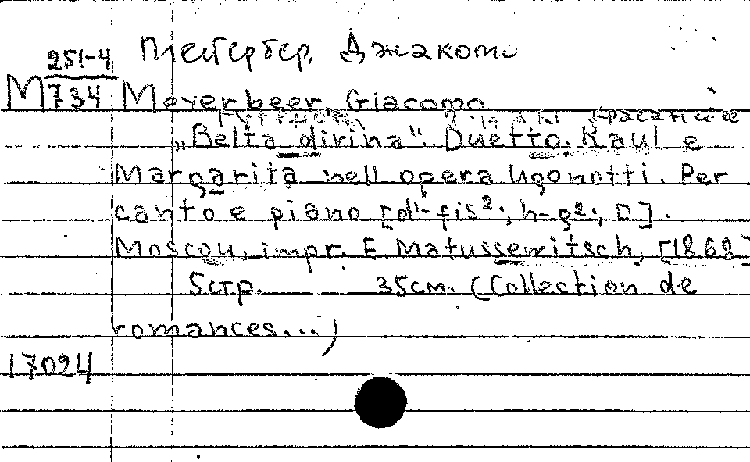 251-4 Мейербер, Джакомо
М 734 Meyerbeer Giacomo
"Belta divina". Duetto. Raul e
Margarita nell opera Ugonotti. Per
canto e piano [d¹-fis²; h-g²; D].
Moscou, impr. E. Matussewitsch, [1868]
5стр. 35см. (Collection de
romances...)
17024